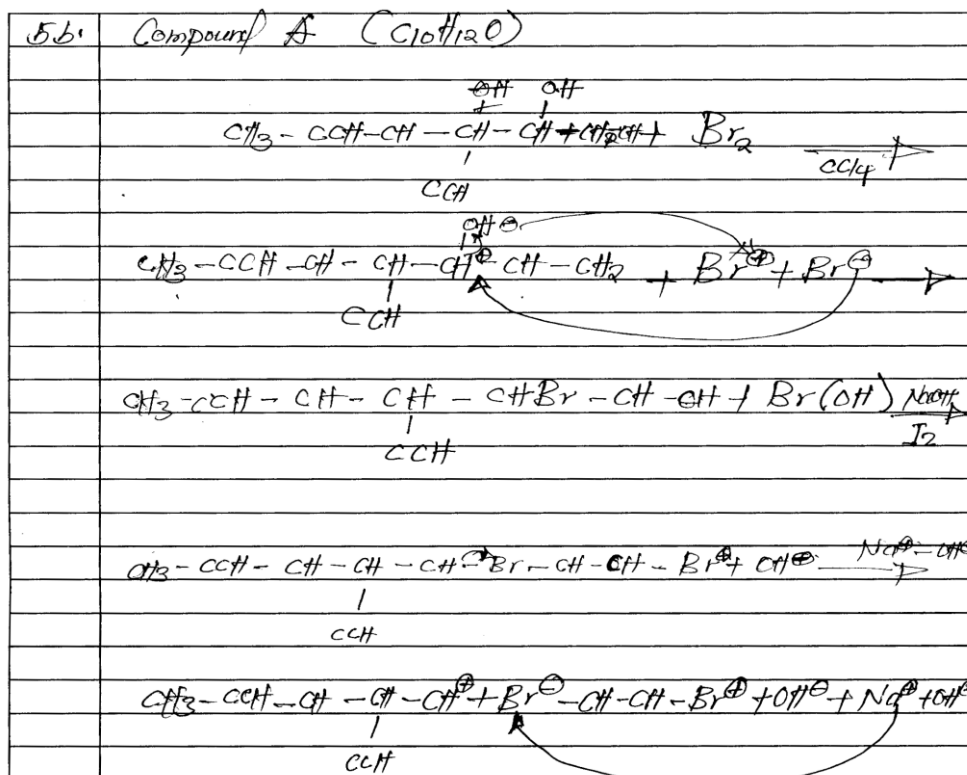 5b. Compound A (C10H12O)
OH OH
CH3 - CCH - CH - CH - CH + CH2CH + Br2
CCl4
CCH
OH⊖
CH3 - CCH - CH - CH - CH⊕ - CH - CH2 + Br⊕ + Br⊖
CCH
CH3 - CCH - CH - CH - CHBr - CH - CH + Br(OH) NaOH
I2
CCH
CH3 - CCH - CH - CH - CH - Br - CH - CH - Br⊕ + OH⊕ Na⊕ - OH⊖
CCH
CH3 - CCH - CH - CH - CH⊕ + Br⊖ - CH - CH - Br⊕ + OH⊖ + Na⊕ + OH⊖
CCH